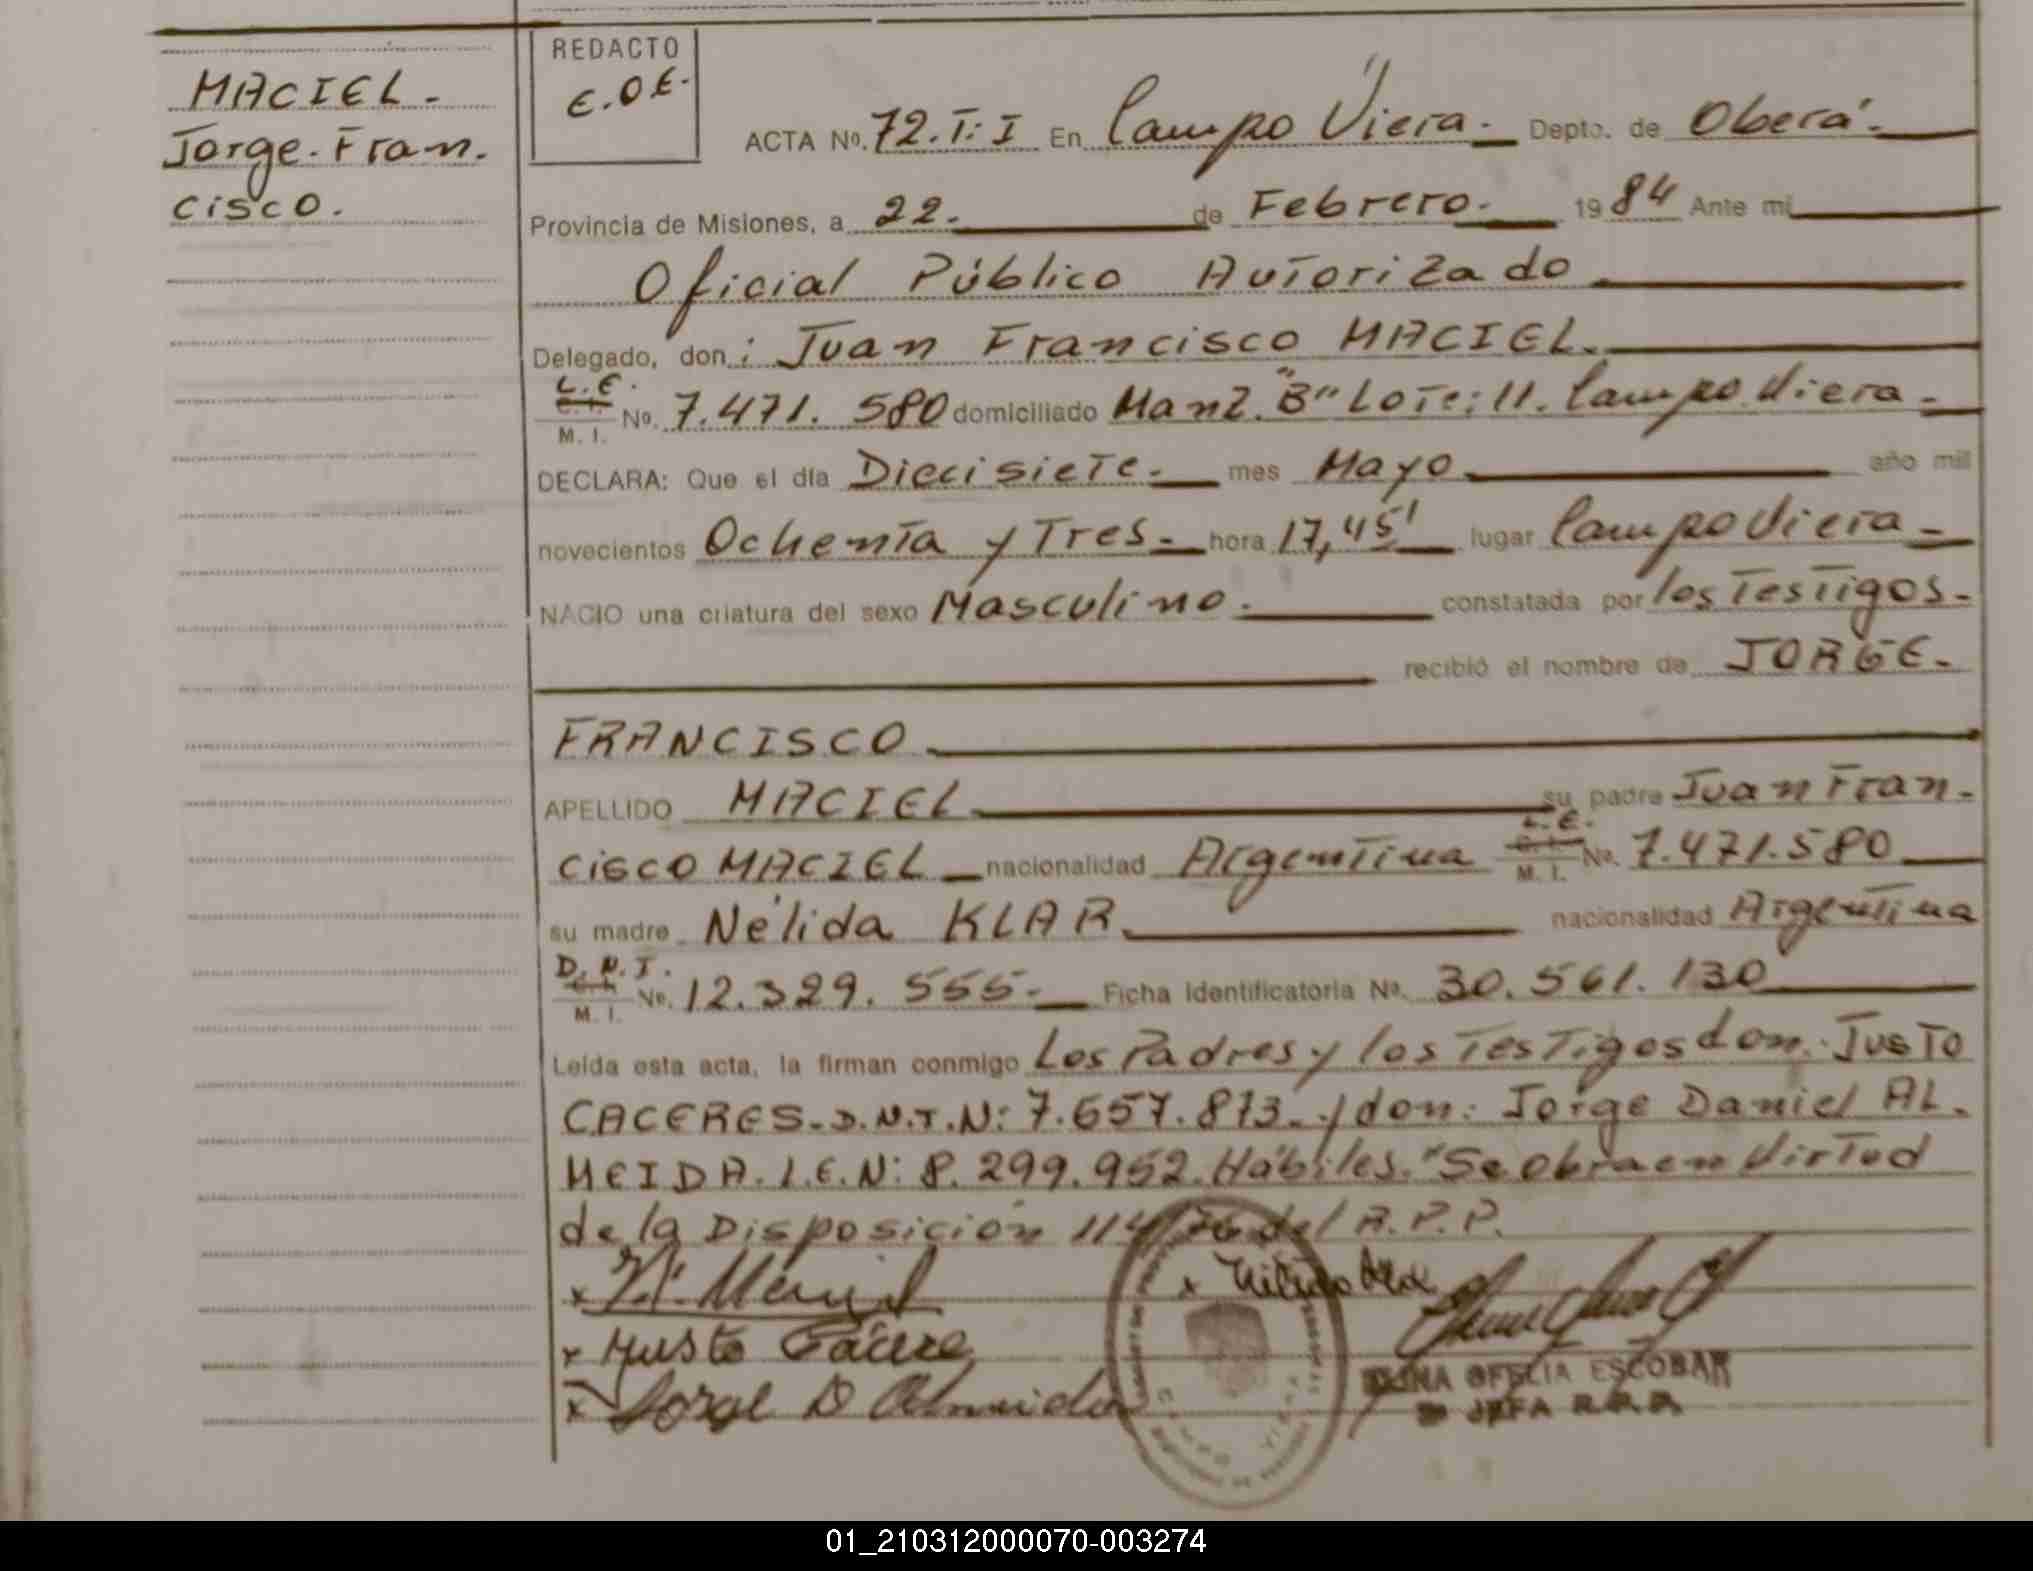 MACIEL.
Jorge. Fran.
cisco.
REDACTO
E.O.E.
ACTA Nº. 72. T: I En Campo Viera. Depto. de Oberá.
Provincia de Misiones, a 22. de Febrero. 1984 Ante mi
Oficial Público Autorizado
Delegado, don: Juan Francisco MACIEL.
L.E.
C. I.
M. I. Nº. 7.471.580 domiciliado Manz. "B" Lote: 11. Campo Viera.
DECLARA: Que el día Diecisiete. mes Mayo año mil
novecientos Ochenta y Tres. hora 17,45' lugar Campo Viera.
NACIO una criatura del sexo Masculino. constatada por los Testigos.
recibió el nombre de JORGE.
FRANCISCO
APELLIDO MACIEL su padre Juan Fran.
cisco MACIEL nacionalidad Argentina L.E. C. I. M. I. Nº. 7.471.580
su madre Nélida KLAR. nacionalidad Argentina
D.N.I.
C. I.
M. I. Nº. 12.329.555. Ficha Identificatoria Nº. 30.561.130
Leída esta acta, la firman conmigo Los Padres y los Testigos don: Justo
CACERES. D.N.I. N: 7.657.873. y don: Jorge Daniel AL.
MEIDA. L.E. N: 8.299.952. Hábiles. "Se obra en Virtud
de la Disposición 114/76 del R.P.P.
Justo Cácere
Jorge D Almeida
OFELIA ESCOBAR
JEFA R.P.P.
01_210312000070-003274